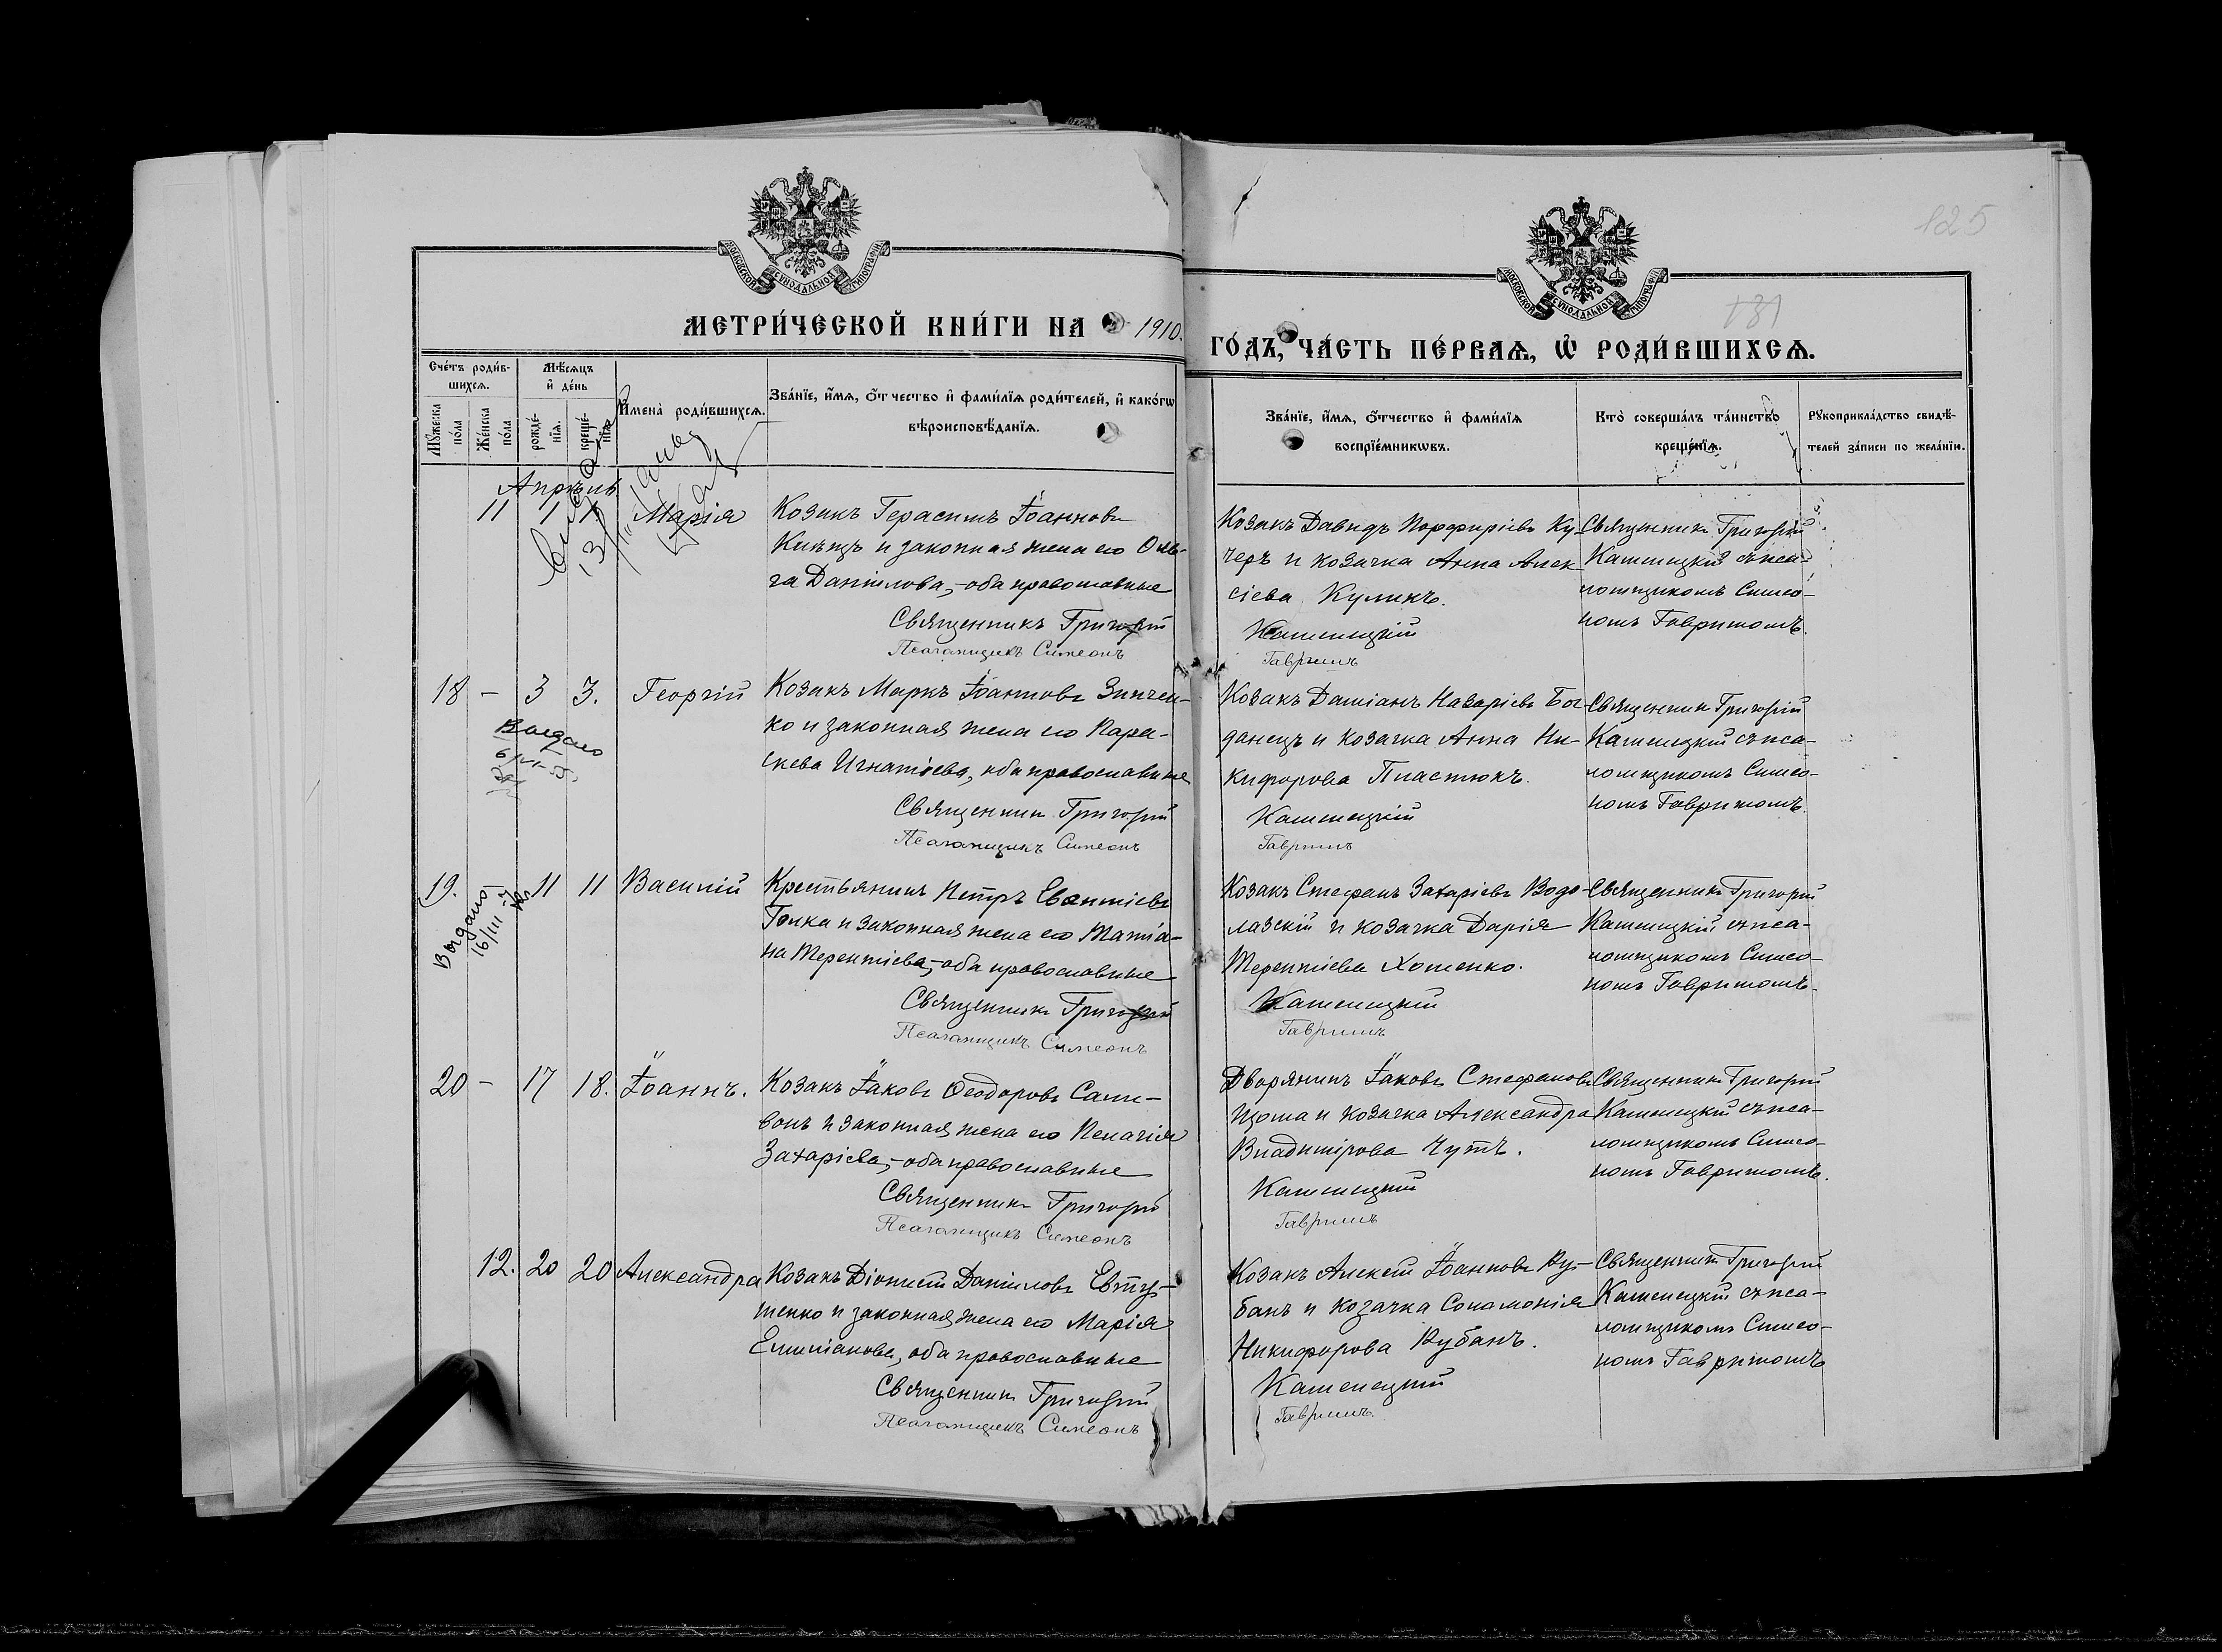 125
МОСКОВСКОЙ СѴНОДАЛЬНОЙ ТИПОГРАФІИ
МОСКОВСКОЙ СѴНОДАЛЬНОЙ ТИПОГРАФІИ
131
МЕТРИ́ЧЕСКОЙ КНИ́ГИ НА 1910.
ГО́ДЪ, ЧА́СТЬ ПЕ́РВАѦ, Ѡ РОДИ́ВШИХСѦ.
Сче́тъ роди́в-
шихсѧ.
Мꙋжеска
по́ла
Же́нска
по́ла
Мѣ́сѧцъ
и де́нь
рожде́-
нїѧ.
креще́-
нїѧ.
Имена̀ роди́вшихсѧ.
Зва́нїе, и́мѧ, о́тчество и фами́лїѧ роди́телей, и како́гѡ
вѣроисповѣ́данїѧ.
Зва́нїе, и́мѧ, о́тчество и фами́лїѧ
воспрїе́мникѡвъ.
Кто̀ соверша́лъ та́инство
креще́нїѧ.
Рꙋкоприкла́дство свидѣ́-
телей за́писи по жела́нїю.
Апрѣль
11 1 1 Марія
Козакъ Герасимъ Іоанновъ
и законная жена его Оль-
га Даніилова,-оба православные
Священникъ Григорій
Псаломщикъ Симеонъ
Козакъ Давидъ Порфиріевъ Ку-
черъ и козачка Анна Алек-
сіева Куликъ.
Каменецкій
Гавришъ
Священникъ Григорій
Каменецкій съ пса-
ломщикомъ Симео-
номъ Гавришомъ.
18 - 3 3. Георгій
Выдано
Козакъ Маркъ Іоанновъ Зинчен-
ко и законная жена его Пара-
скева Игнатіева, оба православные
Священникъ Григорій
Псаломщикъ Симеонъ
Козакъ Даміанъ Назаріевъ Бог-
данецъ и козачка Анна Ни-
кифорова Пластюкъ.
Каменецкій
Гавришъ
Священникъ Григорій
Каменецкій съ пса-
ломщикомъ Симео-
номъ Гавришомъ.
19. 11 11 Василій
Выдано
16/III
Крестьянинъ Петръ Евантіевъ
Гопка и законная жена его Татіа-
на Терентіева,-оба православные
Священникъ Григорій
Псаломщикъ Симеонъ
Козакъ Стефанъ Захаріевъ Водо-
лазскій и козачка Дарія
Терентіева Хоменко.
Каменецкій
Гавришъ
Священникъ Григорій
Каменецкій съ пса-
ломщикомъ Симео-
номъ Гавришомъ.
20 - 17 18. Іоаннъ.
Козакъ Іаковъ Ѳеодоровъ Сали-
вонъ и законная жена его Пелагія
Захаріева,-оба православные
Священникъ Григорій
Псаломщикъ Симеонъ
Дворянинъ Іаковъ Стефановъ
Цюма и козачка Александра
Владимірова Чутъ.
Каменецкій
Гавришъ
Священникъ Григорій
Каменецкій съ пса-
ломщикомъ Симео-
номъ Гавришомъ.
12. 20 20 Александра
Козакъ Діонисій Даніиловъ Евту-
шенко и законная жена его Марія
Емиліанова, оба православные
Священникъ Григорій
Псаломщикъ Симеонъ
Козакъ Алексій Іоанновъ Ку-
банъ и козачка Соломонія
Никифорова Кубанъ.
Каменецкій
Гавришъ.
Священникъ Григорій
Каменецкій съ пса-
ломщикомъ Симео-
номъ Гавришомъ